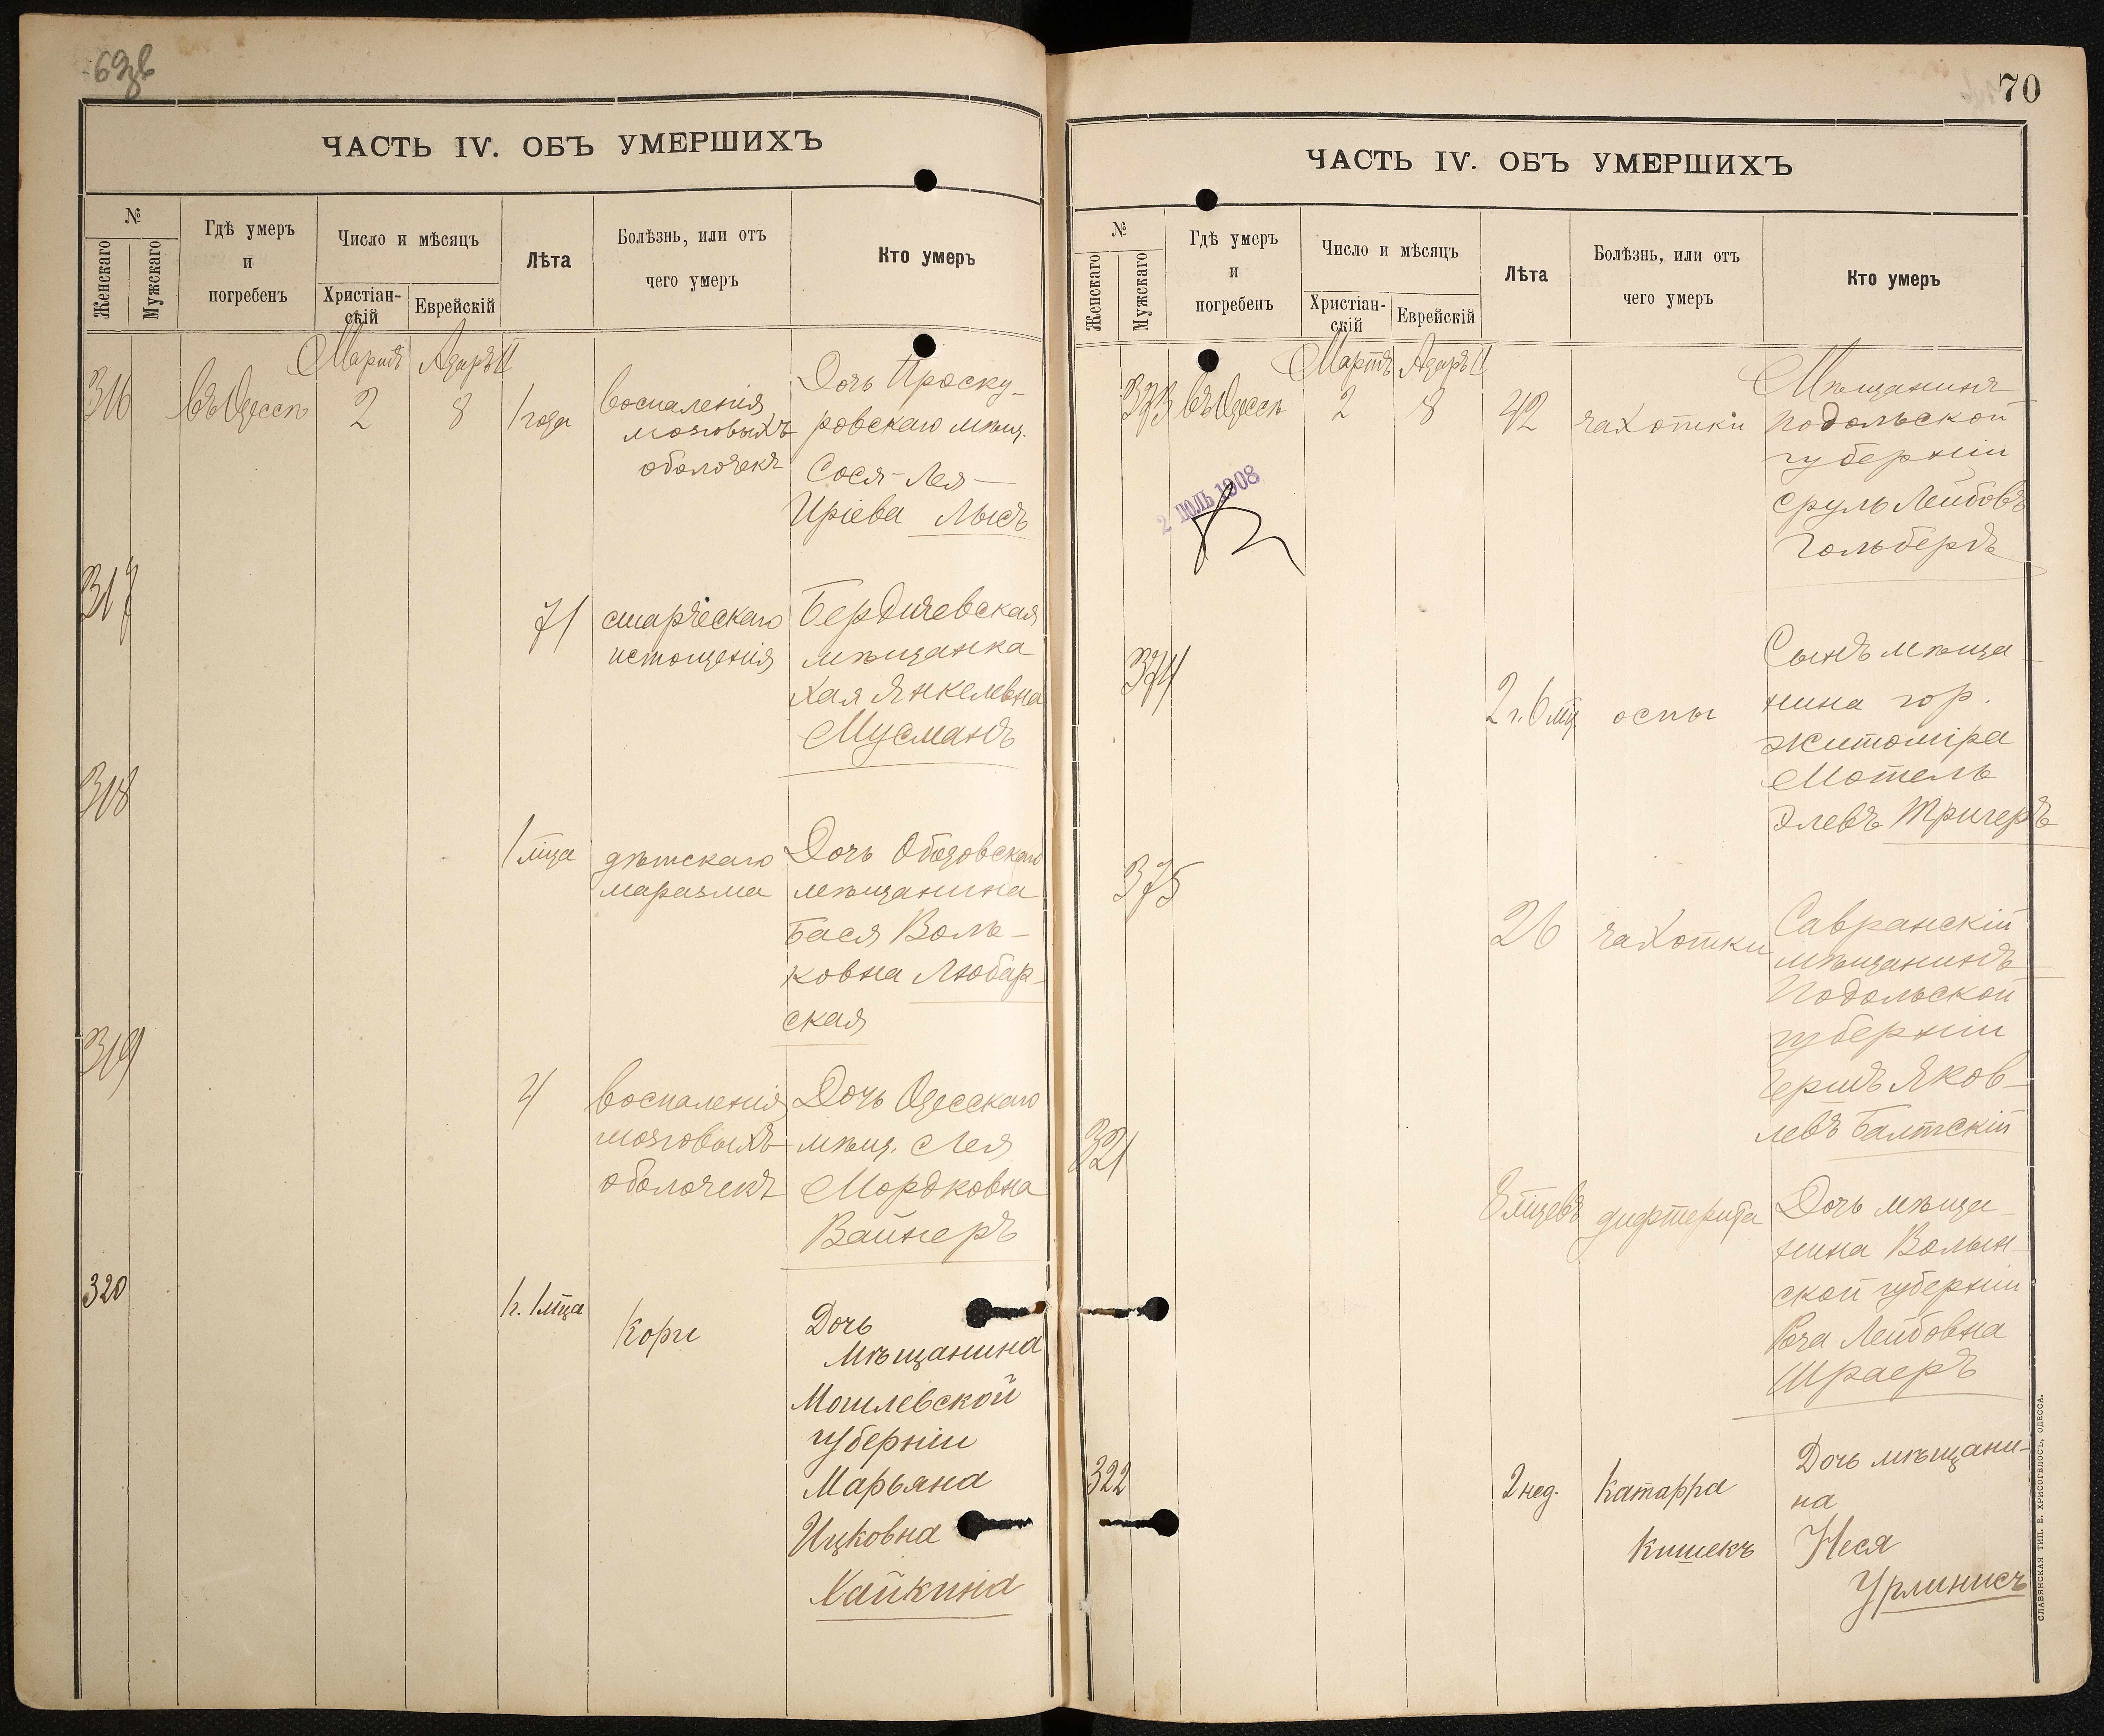 ЧАСТЬ IV. ОБЪ УМЕРШИХЪ
№
Женскаго
Мужскаго
Гдѣ умеръ
и
погребенъ
Число и мѣсяцъ
Христіан-
скій
Еврейскій
Лѣта
Болѣзнь, или отъ
чего умеръ
Кто умеръ
Мартъ Адаръ II
316 въ Одессѣ 2 8 1 года
воспаленія
мозговыхъ
оболочекъ
Дочь Проску-
ровскаго мѣщ.
Сося-Лея-
Иріева Лысъ
317
71 старческаго
истощенія
Бердичевская
мѣщанка
Хая Янкелевна
Мусманъ
318
1 мѣца дѣтскаго
маразма
Дочь Ободовскаго
мѣщанина
Бася Воль-
ковна Любар-
ская
319
4 воспаленія
мозговыхъ
оболочекъ
Дочь Одесскаго
мѣщ. Лея
Мордковна
Вайнеръ
320
1 г. 1 мѣца Кори
Дочь
мѣщанина
Могилевской
губерніи
Марьяна
Ицковна
Хайкина
70
ЧАСТЬ IV. ОБЪ УМЕРШИХЪ
№
Женскаго
Мужскаго
Гдѣ умеръ
и
погребенъ
Число и мѣсяцъ
Христіан-
скій
Еврейскій
Лѣта
Болѣзнь, или отъ
чего умеръ
Кто умеръ
Мартъ Адаръ II
373 въ Одессѣ 2 8 42 чахотки
Мѣщанинъ
Подольской
губерніи
Сруль Лейбовъ
Гольбергъ
2 ІЮЛЬ 1908
374
2 г. 6 мц. оспы
Сынъ мѣща-
нина гор.
Житоміра
Мотель
Элевъ Тригеръ
375
26 чахотки
Савранскій
мѣщанинъ
Подольской
губерніи
Гершъ Яков-
левъ Балтскій
321
8 мѣцевъ дифтерита
Дочь мѣща-
нина Волын-
ской губерніи
Лейбовна
Шраеръ
322
2 нед. Катарра
кишекъ
Дочь мѣщани-
на
Неся
Урлинисъ
СЛАВЯНСКАЯ ТИП. Е. ХРИСОГЕЛОСЪ, ОДЕССА.